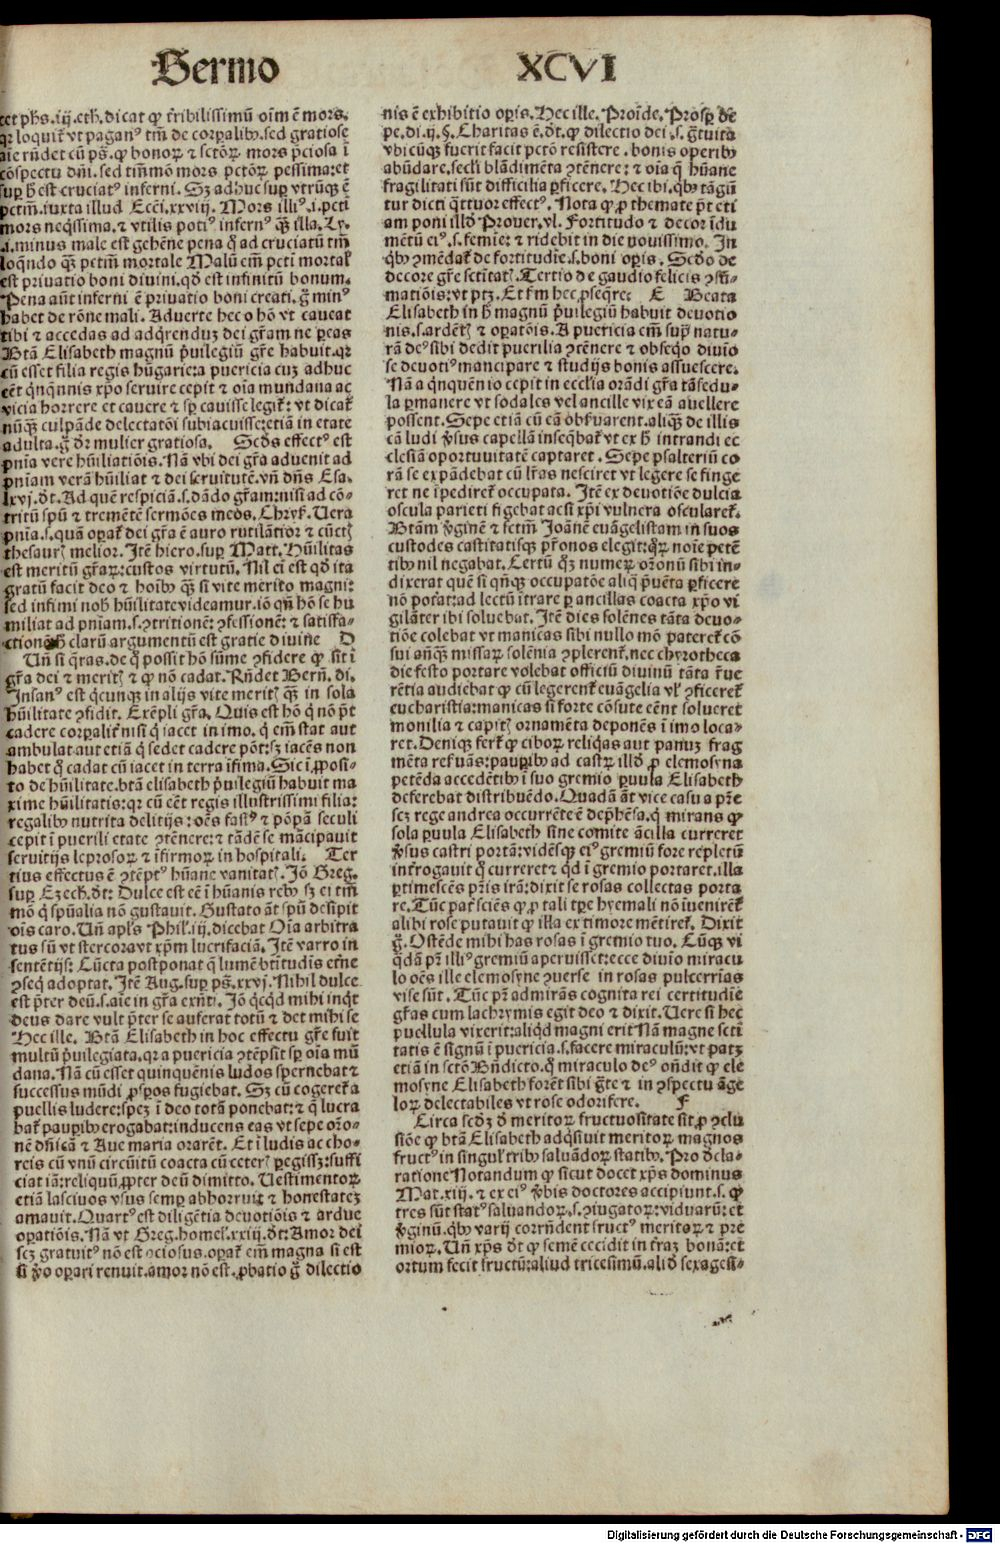 Sermo XCVI
cet phs .iij. eth. dicat ꝙ t̾ribilissimū oīm ē mors.
qꝛ loquit̉ vt paganꝰ tm̄ de corꝑalibꝫ. sed gratiose
aīe rn̄det cū ps̄. ꝙ bonoꝝ ⁊ sctōꝝ mors p̄ciosa ī
cōspectu dn̄i. sed tim̄mō mors pctōꝝ pessima: et
suꝑ h̄ est cruciatꝰ inferni. Sꝫ adhuc suꝑ vtrūqꝫ ē
pctm̄. iuxta illud Ecci. xxviij. Mors illiꝰ .i. pcti
mors neq̄ssima. ⁊ vtilis potiꝰ infernꝰ qꝫ̄ illa. Ly.
.i. minus male est gehēne pena q̄ ad cruciatū tm̄
loq̄ndo qꝫ̄ pctm̄ mortale Malū em̄ pcti mortał
est priuatio boni diuini. qd̄ est infinitū bonum.
Pena aūt inferni ē priuatio boni creati. g̊ minꝰ
habet de rōne mali. Aduerte hec o hō vt caueat
tibi ⁊ accedas ad adq̄renduꝫ dei gr̄am ne ꝑeas
Btā Elisabeth magnū p̄uilegiū gr̄e habuit. qꝛ
cū esset filia regis hūgarie: a puericia cuꝫ adhuc
eēt q̄nq̄nnis xp̄o seruire cepit ⁊ oīa mundana ac
vicia horrere et cauere ⁊ sꝑ cauisse legit̉: vt dicat̉
nūqꝫ̄ culpāde delectatōi subiacuisse: etiā in etate
adulta. g̊ dr̄ mulier gratiosa. Scd̄s effectꝰ est
pnīa vere hūiliatiōis. Nā vbi dei gr̄a aduenit ad
pnīam verā hūiliat ⁊ dei seruitutē. vn̄ dn̄s Esa.
lxvj. dt̄. Ad quē respiciā. s. dādo gr̄am: nisi ad cō-
tritū spū ⁊ tremētē sermōes meos. Chryṡ. Uera
pnīa. s. quā oꝑat̉ dei gr̄a ē auro rutilātior ⁊ cūctꝭ
thesaurꝭ melior. Itē hiero. suꝑ Matt. Hūilitas
est meritū gr̄aꝝ: custos virtutū. Nil ei est qd̄ ita
gratū facit deo ⁊ hoībꝫ qꝫ̄ si vite merito magni:
sed infimi nob̄ hūilitate videamur. iō qn̄ hō se hu
miliat ad pnīam. s. ꝯtritionē: ꝯfessionē: ⁊ satisfa-
ctionē h̄ clarū argumentū est gratie diuine D
Un̄ si q̄ras. de q̊ possit hō sūme ꝯfidere ꝙ sit ī
gr̄a dei ⁊ meritꝭ ⁊ ꝙ nō cadat. Rn̄det Bern̄. di.
Insanꝰ est q̊cunqꝫ in alijs vite meritꝭ qꝫ̄ in sola
hūilitate ꝯfidit. Exēpli gr̄a. Quis est hō q̊ nō p̄t
cadere corꝑalit̉ nisi q̊ iacet in imo. q̊ em̄ stat aut
ambulat aut etiā q̊ sedet cadere pōt: sꝫ iacēs non
habet q̊ cadat cū iacet in terra īfima. Sic ī ꝓposi-
to de hūilitate. btā elisabeth p̄uilegiū habuit ma
xime hūilitatis: qꝛ cū eēt regis illustrissimi filia:
regalibꝫ nutrita delitijs: oēs fastꝰ ⁊ pōpā seculi
cepit ī puerili etate ꝯtēnere: ⁊ tādē se mācipauit
seruitijs leprosoꝝ ⁊ īfirmoꝝ in hospitali. Ter
tius effectus ē ꝯtēptꝰ hūane vanitatꝭ. Iō Greg.
suꝑ Ezech. dt̄: Dulce est eē ī hūanis rebꝫ sꝫ ei tm̄
mō q̊ spūalia nō gustauit. Gustato āt spū desipit
oīs caro. Un̄ apl̄s Phil. iij. dicebat Oīa arbitra
tus sū vt stercora vt xp̄m lucrifaciā. Itē varro in
sentētijs: Cūcta postponat q̊ lumē bt̄itudīs et̾ne
ꝯseq̄ adoptat. Itē Aug. suꝑ ps̄. xxvj. Nihil dulce
est p̄ter deū. s. aīe in gr̄a exn̄ti. Iō q̊cq̊d mihi inq̊t
deus dare vult p̄ter se auferat totū ⁊ det mihi se
Hec ille. Btā Elisabeth in hoc effectu gr̄e fuit
multū p̄uilegiata. qꝛ a puericia ꝯtēpsit sꝑ oīa mū
dana. Nā cū esset quinquēnis ludos spernebat ⁊
successus mūdi ꝓsꝑos fugiebat. Sꝫ cū cogeret̉ a
puellis ludere: speꝫ ī deo totā ponebat: ⁊ q̄ lucra
bat̉ pauꝑibꝫ erogabat: inducens eas vt sepe orō-
nē dn̄icā ⁊ Aue maria orarēt. Et ī ludis ac cho-
reis cū vnū circūitū coacta cū ceterꝭ ꝑegissꝫ: suffi
ciat iā: reliquū ꝓpter deū dimitto. Uestimentoꝝ
etiā lasciuos vsus semꝑ abhorruit ⁊ honestateꝫ
amauit. Quartꝰ est diligētia deuotiōis ⁊ ardue
oꝑatiōis. Nā vt Greg. homel̄. xxiij. dt̄: Amor dei
scꝫ gratuitꝰ nō est ociosus. oꝑat̉ em̄ magna si est
si v̾o oꝑari renuit. amor nō est. ꝓbatio g̊ dilectio
nis ē exhibitio oꝑis. Hec ille. Proīde. Prosꝑ de
pe. di. ij. §. Charitas ē. dt̄. ꝙ dilectio dei .s. g̊tuita
vbicūqꝫ fuerit facit pctō resistere. bonis operibꝫ
abūdare. secl̄i blādimēta ꝯtēnere: ⁊ oīa q̄ hūane
fragilitati sūt difficilia ꝑficere. Hec ibi. qͥbꝫ tāgū
tur dicti q̊ttuor effectꝰ. Nota ꝙ ꝓ themate p̄t eti
am poni illd̄ Prouer. vl̄. Fortitudo ⁊ decor īdu
mētū eiꝰ .s. femīe: ⁊ ridebit in die nouissimo. In
qͥbꝫ ꝯmēdat̉ de fortitudīe. s. boni oꝑis. Scd̄o de
decore gr̄e sctītatꝭ. Tertio de gaudio felicis ꝯsū-
matiōis: vt ptꝫ. Et fm̄ hec ꝓseq̄re: E Beata
Elisabeth in h̄ magnū p̄uilegiū habuit deuotio
nis. s. ardētꝭ ⁊ oꝑatōis. A puericia em̄ supͣ natu-
rā deꝰ sibi dedit puerilia ꝯtēnere ⁊ obseq̊o diuīo
se deuotiꝰ mancipare ⁊ studijs bonis assuescere.
Nā a q̊nquēnio cepit in eccl̄ia orādi gr̄a tā sedu-
la ꝑmanere vt sodales vel ancille vix eā auellere
possent. Sepe etiā cū eā obẜuarent. aliqꝫ̄ de illis
cā ludi v̾sus capellā inseq̄bat̉ vt ex h̄ intrandi ec
clesiā oportunitatē captaret. Sepe psalteriū co
rā se expādebat cū lr̄as nesciret vt legere se finge
ret ne īpediret̉ occupata. Itē ex deuotiōe dulcia
oscula parieti figebat ac si xp̄i vulnera oscularet̉.
Btām v̾ginē ⁊ sctm̄ Joānē euāgelistam in suos
custodes castitatisqꝫ pr̄onos elegit: qͦꝝ noīe petē
tibꝫ nil negabat. Certū qͦꝫ numeꝝ orōnū sibi in-
dixerat quē si qn̄qꝫ occupatōe aliq̄ p̄uēta ꝑficere
nō pot̾at: ad lectū ītrare ꝑ ancillas coacta xp̄o vi
gilāter ibi soluebat. Itē dies solēnes tāta deuo-
tiōe colebat vt manicas sibi nullo mō pateret̉ cō
sui an̄qꝫ̄ missaꝝ solēnia ꝯplerent̉. nec chyrotheca
die festo portare volebat officiū diuinū tāta r̄ue
rētia audiebat ꝙ cū legerent̉ euāgelia vl̾ ꝯficeret̉
eucharistia: manicas si forte cōsute eēnt solueret
monilia ⁊ capitꝭ ornamēta deponēs ī imo loca-
ret. Deniqꝫ fert̉ ꝙ ciboꝝ reliq̊as aut panuꝫ frag
mēta reẜuās: pauꝑibꝫ ad castꝝ illd̄ ꝓ elemosyna
petēda accedētibꝫ ī suo gremio ꝑuula Elisabeth
deferebat distribuēdo. Quadā āt vice casu a pr̄e
scꝫ rege andrea occurrēte ē dep̄hēsa. q̊ mirans ꝙ
sola ꝑuula Elisabeth sīne comite ācilla curreret
v̾sus castri portā: vidēsqꝫ eiꝰ gremiū fore repletū
int̾rogauit q̊ curreret ⁊ q̊d ī gremio portaret. illa
ꝑtimescēs pr̄is irā: dixit se rosas collectas porta
re. Tūc pat̉ sciēs ꝙ ꝓ tali tꝑe hyemali nō īuenirēt̉
alibi rose putauit ꝙ illa ex timore mētiret̉. Dixit
g̊. Ostēde mihi has rosas ī gremio tuo. Cūqꝫ vi
q̊dā pr̄ illiꝰ gremiū aperuisset: ecce diuīo miracu
lo oēs ille elemosyne ꝯuerse in rosas pulcerrīas
vise sūt. Tūc pr̄ admirās cognita rei certitudīe
gr̄as cum lachrymis egit deo ⁊ dixit. Uere si hec
puellula vixerit: aliq̊d magni erit Nā magne scti
tatis ē signū ī puericia. s. facere miraculū: vt patꝫ
etiā in sctō Bn̄dicto. q̊ miraculo deꝰ on̄dit ꝙ ele
mosyne Elisabeth forēt sibi g̊te ⁊ in ꝯspectu āge
loꝝ delectabiles vt rose odorifere. F
Circa scd̄ꝫ d̄ meritoꝝ fructuositate sit ꝓ ꝯclu
siōe ꝙ btā Elisabeth adq̊siuit meritoꝝ magnos
fructꝰ in singul̾ tribꝫ saluādoꝝ statibꝫ. Pro d̄cla-
ratione Notandum ꝙ sicut docet xp̄s dominus
Mat. xiij. ⁊ ex eiꝰ v̾bis doctores accipiunt. s. ꝙ
tres sūt statꝰ saluandoꝝ. s. ꝯiugatoꝝ: viduarū: et
v̾ginū. qͥbꝫ varij corrn̄dent fructꝰ meritoꝝ ⁊ pre
mioꝝ. Un̄ xp̄s dt̄ ꝙ semē cecidit in t̾raꝫ bonā: et
ortum fecit fructū: aliud tricesimū. alid̄ sexagesi-
Digitalisierung gefördert durch die Deutsche Forschungsgemeinschaft - DFG